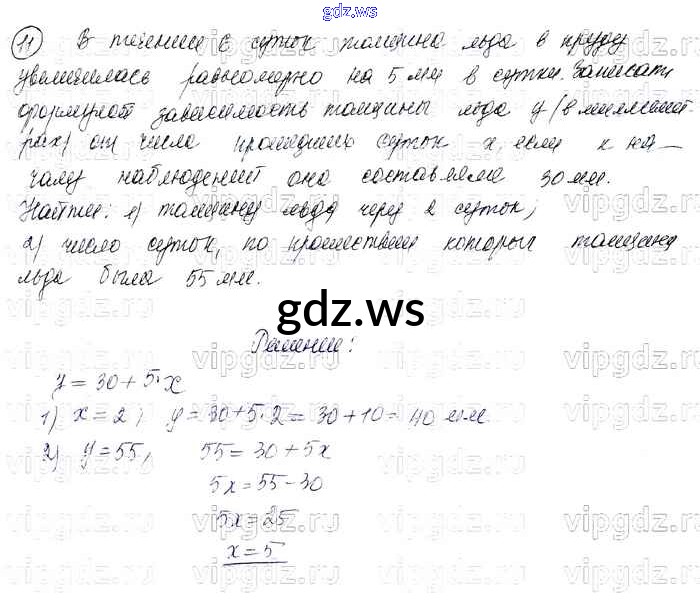 gdz.ws
11 В течении 6 суток толщина льда в пруду
увеличилась равномерно на 5 мм в сутки. Записать
формулой зависимость толщины льда y (в миллимет-
рах) от числа прошедших суток x, если к на-
чалу наблюдений она составляла 30 мм.
Найти: 1) толщину льда через 2 суток;
2) число суток, по прошествии которых толщина
льда была 55 мм.
gdz.ws
Решение:
y = 30 + 5·x
1) x = 2; y = 30 + 5·2 = 30 + 10 = 40 мм
2) y = 55, 55 = 30 + 5x
5x = 55 - 30
5x = 25
x = 5
vipgdz.ru